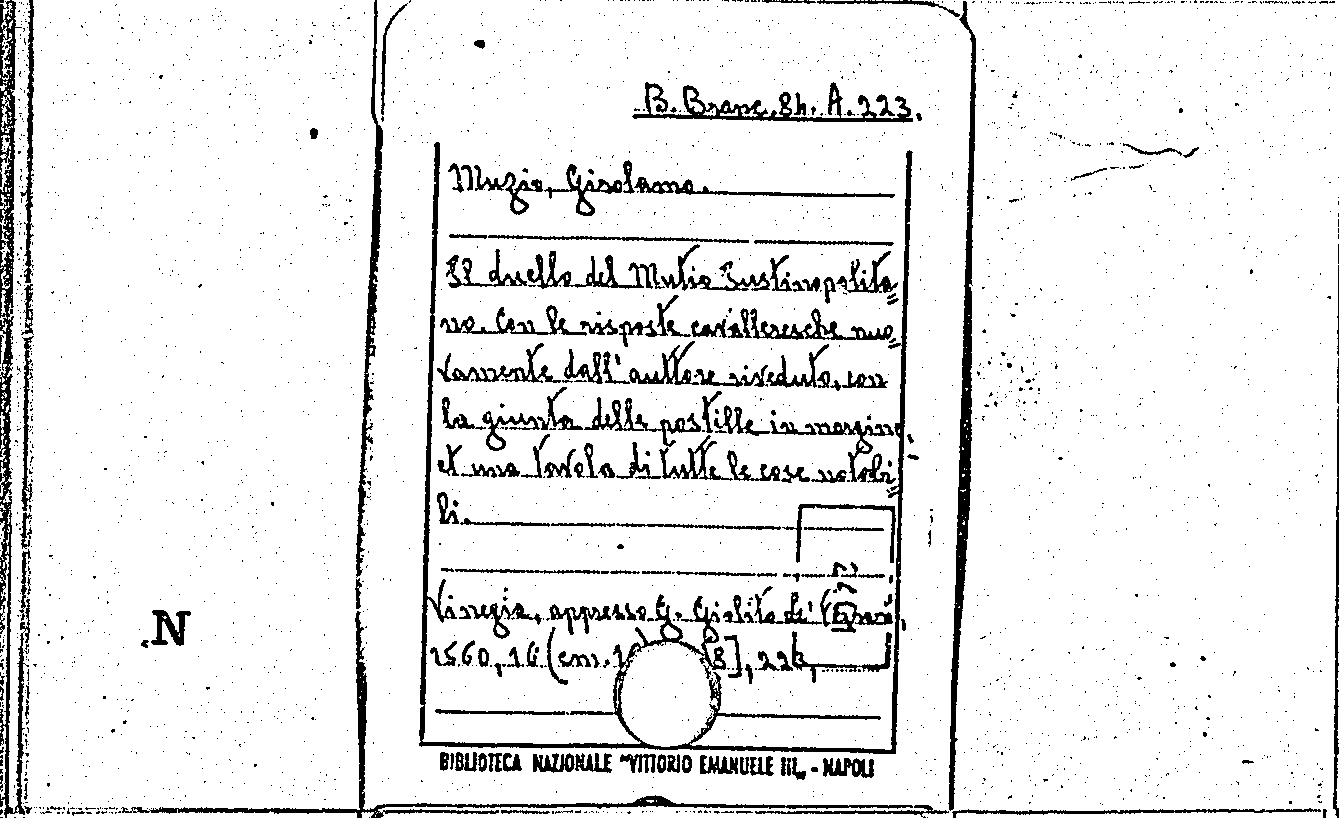 B. Branc. 84. A. 223.
Muzio, Girolamo.
Il duello del Mutio Iustinopolita=
no. Con le risposte cavalleresche nuo=
vamente dall'auttore riveduto, con
la giunta delle postille in margine,
et una tavola di tutte le cose notabi=
li.
Vinegia, appresso G. Giolito de'
1560, 16 (cm. 8],
N
BIBLIOTECA NAZIONALE "VITTORIO EMANUELE III„ - NAPOLI